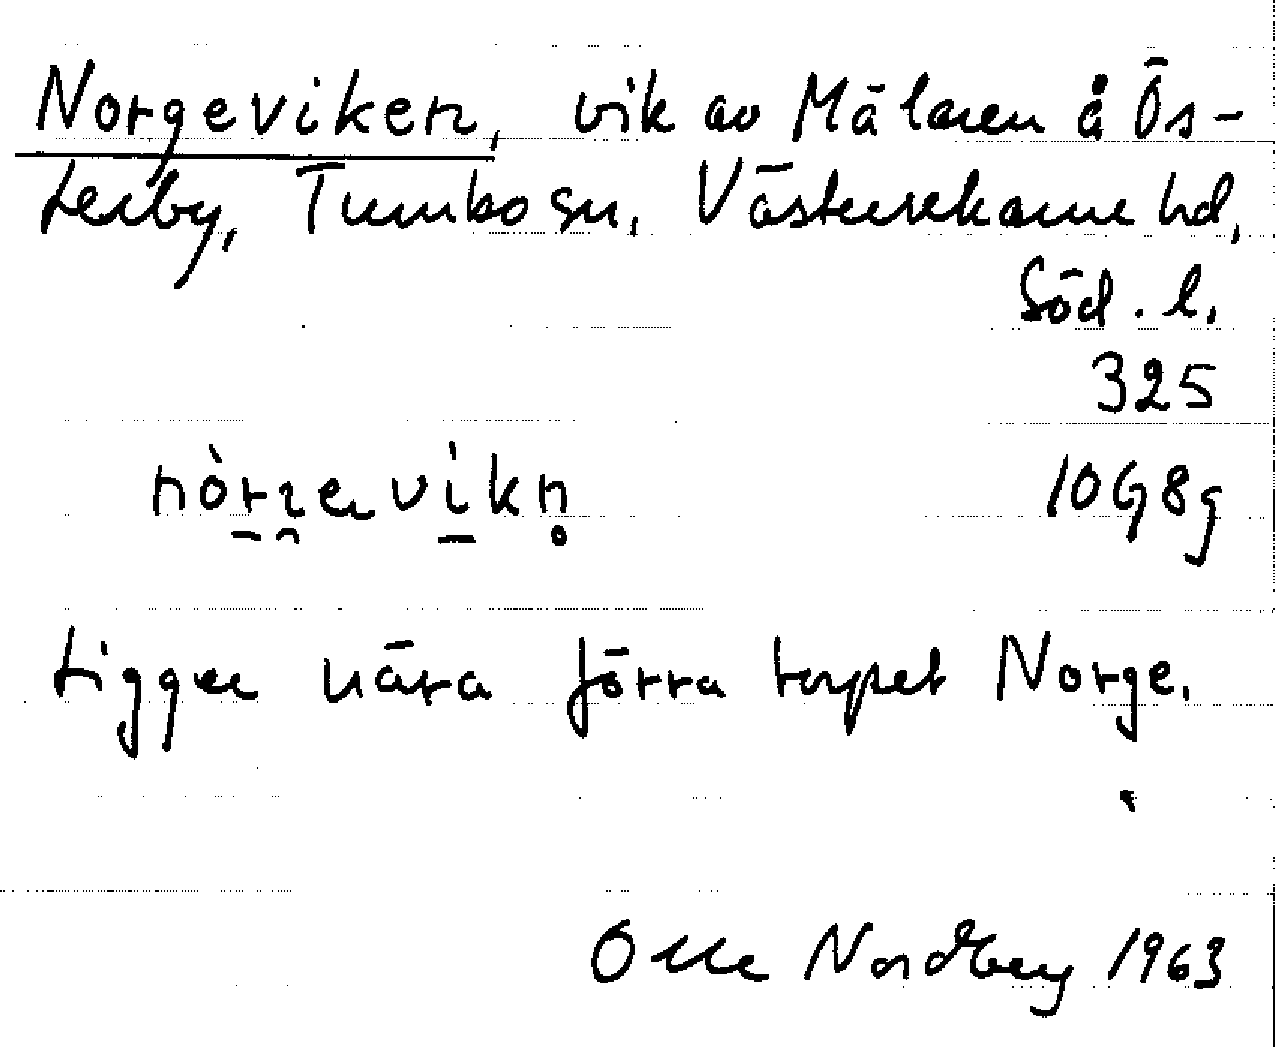 Norgeviken, vik av Mälaren å Ös-
terby, Tumbo sn, Västerrekarne hd,
Söd. l.
325
10G8g
Ligger nära förra torpet Norge.
Olle Nordberg 1963